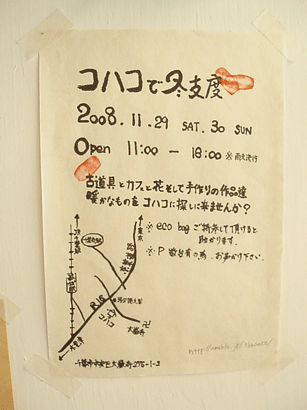 コハコで冬支度
2008.11.29 SAT. 30 SUN
Open 11:00 — 18:00 ※雨天決行
古道具とカフェと花そして手作りの作品達
暖かなものをコハコに探しに来ませんか?
※ eco bagご持参して頂けると
助かります。
※ P 数台有の為、お声かけ下さい。
R16
コハコ
大巌寺
千葉市中央区大巌寺町276-1-3